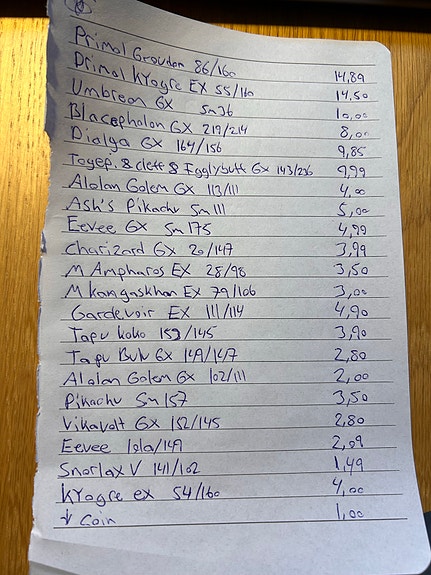 Primal Groudon 86/160 14,89
Primal Kyogre EX 55/160 14,50
Umbreon GX Sm36 10,00
Blacephalon GX 219/214 8,00
Dialga GX 164/156 9,85
Togep. & cleff & Igglybuff GX 143/236 9,99
Alolan Golem GX 113/111 4,00
Ash's Pikachu Sm111 5,00
Eevee GX Sm175 4,99
Charizard GX 20/147 3,99
M Ampharos EX 28/98 3,50
M Kangaskhan EX 79/106 3,00
Gardevoir EX 111/114 4,90
Tapu Koko 153/145 3,90
Tapu Bulu GX 149/147 2,80
Alolan Golem GX 102/111 2,00
Pikachu Sm157 3,50
Vikavolt GX 152/145 2,80
Eevee 101a/149 2,09
Snorlax V 141/202 1,49
Kyogre ex 54/160 4,00
↓ Coin 1,00